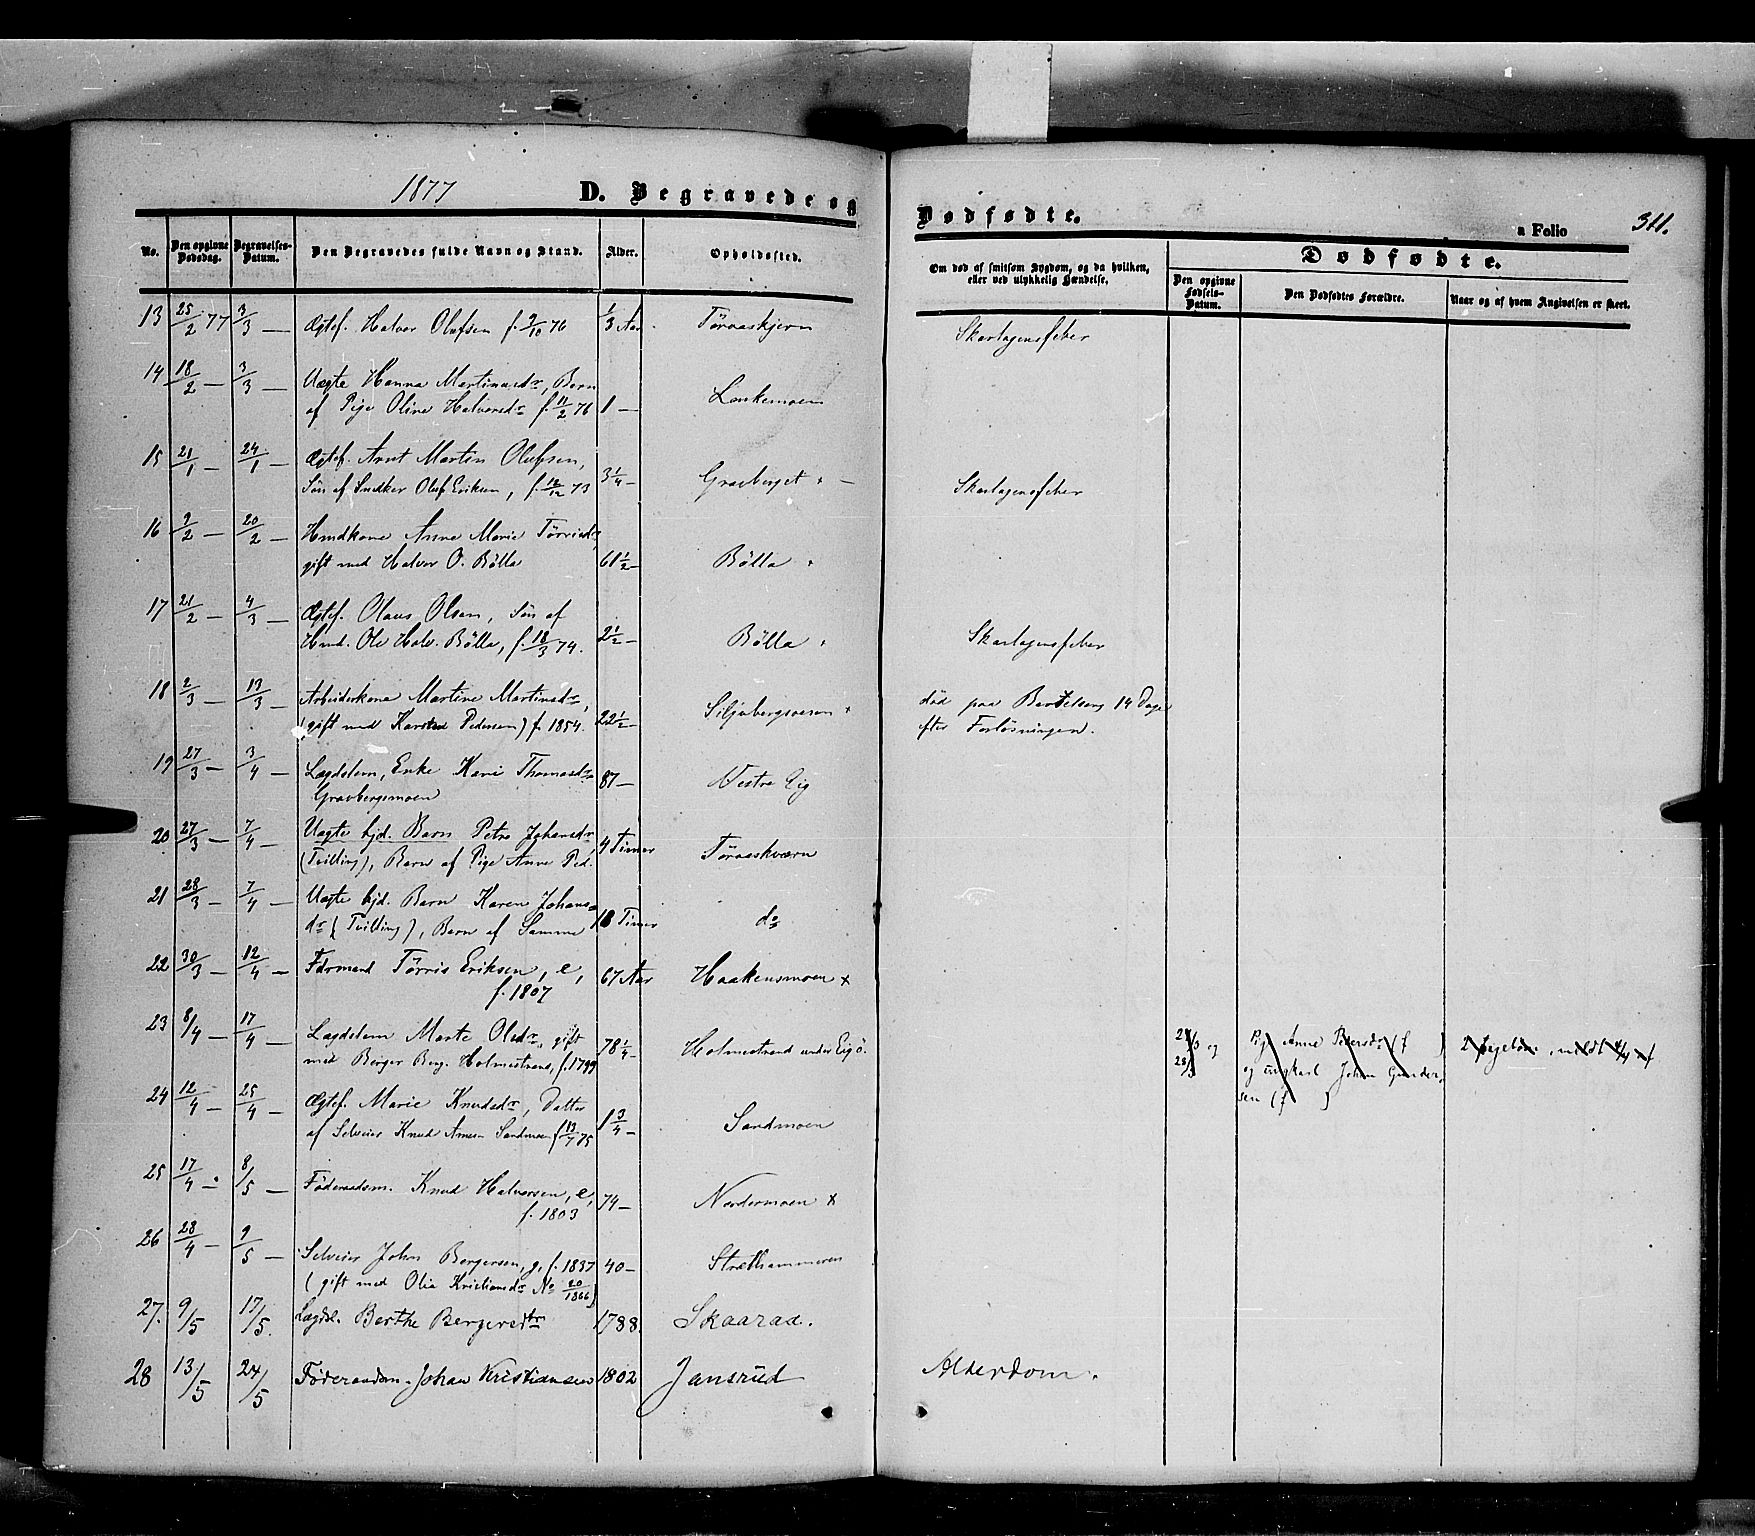 1877
D. Begravede og
Dødfødte.
a Folio
311.
No.
Den opgivne Dødsdag.
Begravelses-Datum.
Den Begravedes fulde Navn og Stand.
Alder.
Opholdssted.
Om død af smitsom Sygdom, og da hvilken,
eller ved ulykkelig Hændelse.
Dødfødte.
Den opgivne Fødsels-Datum.
Den Dødfødtes Forældre.
Naar og af hvem Angivelsen er skeet.
13 25/2 77 3/3 — Ægtef. Halvor Olufsen f. 9/10 76 1/3 Aar Tøraaskjern Skarlagensfeber
14 18/2 — 3/3 — Uægte Hanna Martinusdr, Barn
af Pige Oline Halvorsdr f. 11/2 76 1 — Linkemoen
15 21/1 — 24/1 — Ægtef. Arnt Martin Olufsen,
Søn af Snedker Oluf Eriksen, f. 12/12 73 3 1/4 — Gravberget — Skarlagensfeber
16 9/2 — 20/2 — Husdkone Anne Marie Tørrisdr
gift med Halvor O. Bölla 61 1/2 — Bölla
17 21/2 — 4/3 — Ægtef. Olaus Olsen, Søn af
Husd. Ole Halv. Bölla, f. 18/3 74. 2 1/2 — Bölla Skarlagensfeber
18 2/3 — 13/3 — Arbeiderkone Martine Martinusdr,
(gift med Karsten Pedersen) f. 1854. 22 1/2 — Siljubergsveen død paa Barselseng 14 Dage
efter Forløsningen.
19 27/3 — 3/4 — Lægdslem, Enke Kari Thomasdr
Gravbergsmoen 87 — Vestre Eig
20 27/3 — 7/4 — Uægte hjd. Barn Petra Johansdr
(Tvilling), Barn af Pige Anne Ped. 4 Timer Tøraaskværn
21 28/3 — 7/4 — Uægte hjd. Barn Karen Johans-
dr (Tvilling), Barn af Samme 18 Timer do
22 30/3 — 12/4 — Fdrmand Tørris Eriksen, e,
f. 1807 67 Aar Haakensmoen x
23 8/4 — 17/4 — Lægdslem Marte Olsdr, gift
med Berger Berg. Holmestrand, f. 1799 78 1/4 — Holmestrand under Eig ö.
27/3 og
28/3
Pige Anne Pedersdr (f )
og ungkarl Johan Gunder-
sen (f )
24 12/4 — 25/4 — Ægtef. Marie Knudsdr, Datter
af Selveier Knud Arnes. Sandmoen f. 13/7 75 1 3/4 — Sandmoen
25 17/4 — 8/5 — Föderaadsm. Knud Halvorsen, e,
f. 1803 74 — Nordermoen x
26 28/4 — 9/5 — Selveier John Bergersen, g, f. 1837 40 — Stræthammeren
(gift med Olia Kristiansdr No 20/1866)
27. 9/5 17/5. Lægdsl. Berthe Bergersdtr 1788. Skaaraa.
28 13/5 24/5 Føderaadsm. Johan Kristiansen 1802 Jansrud Alderdom.